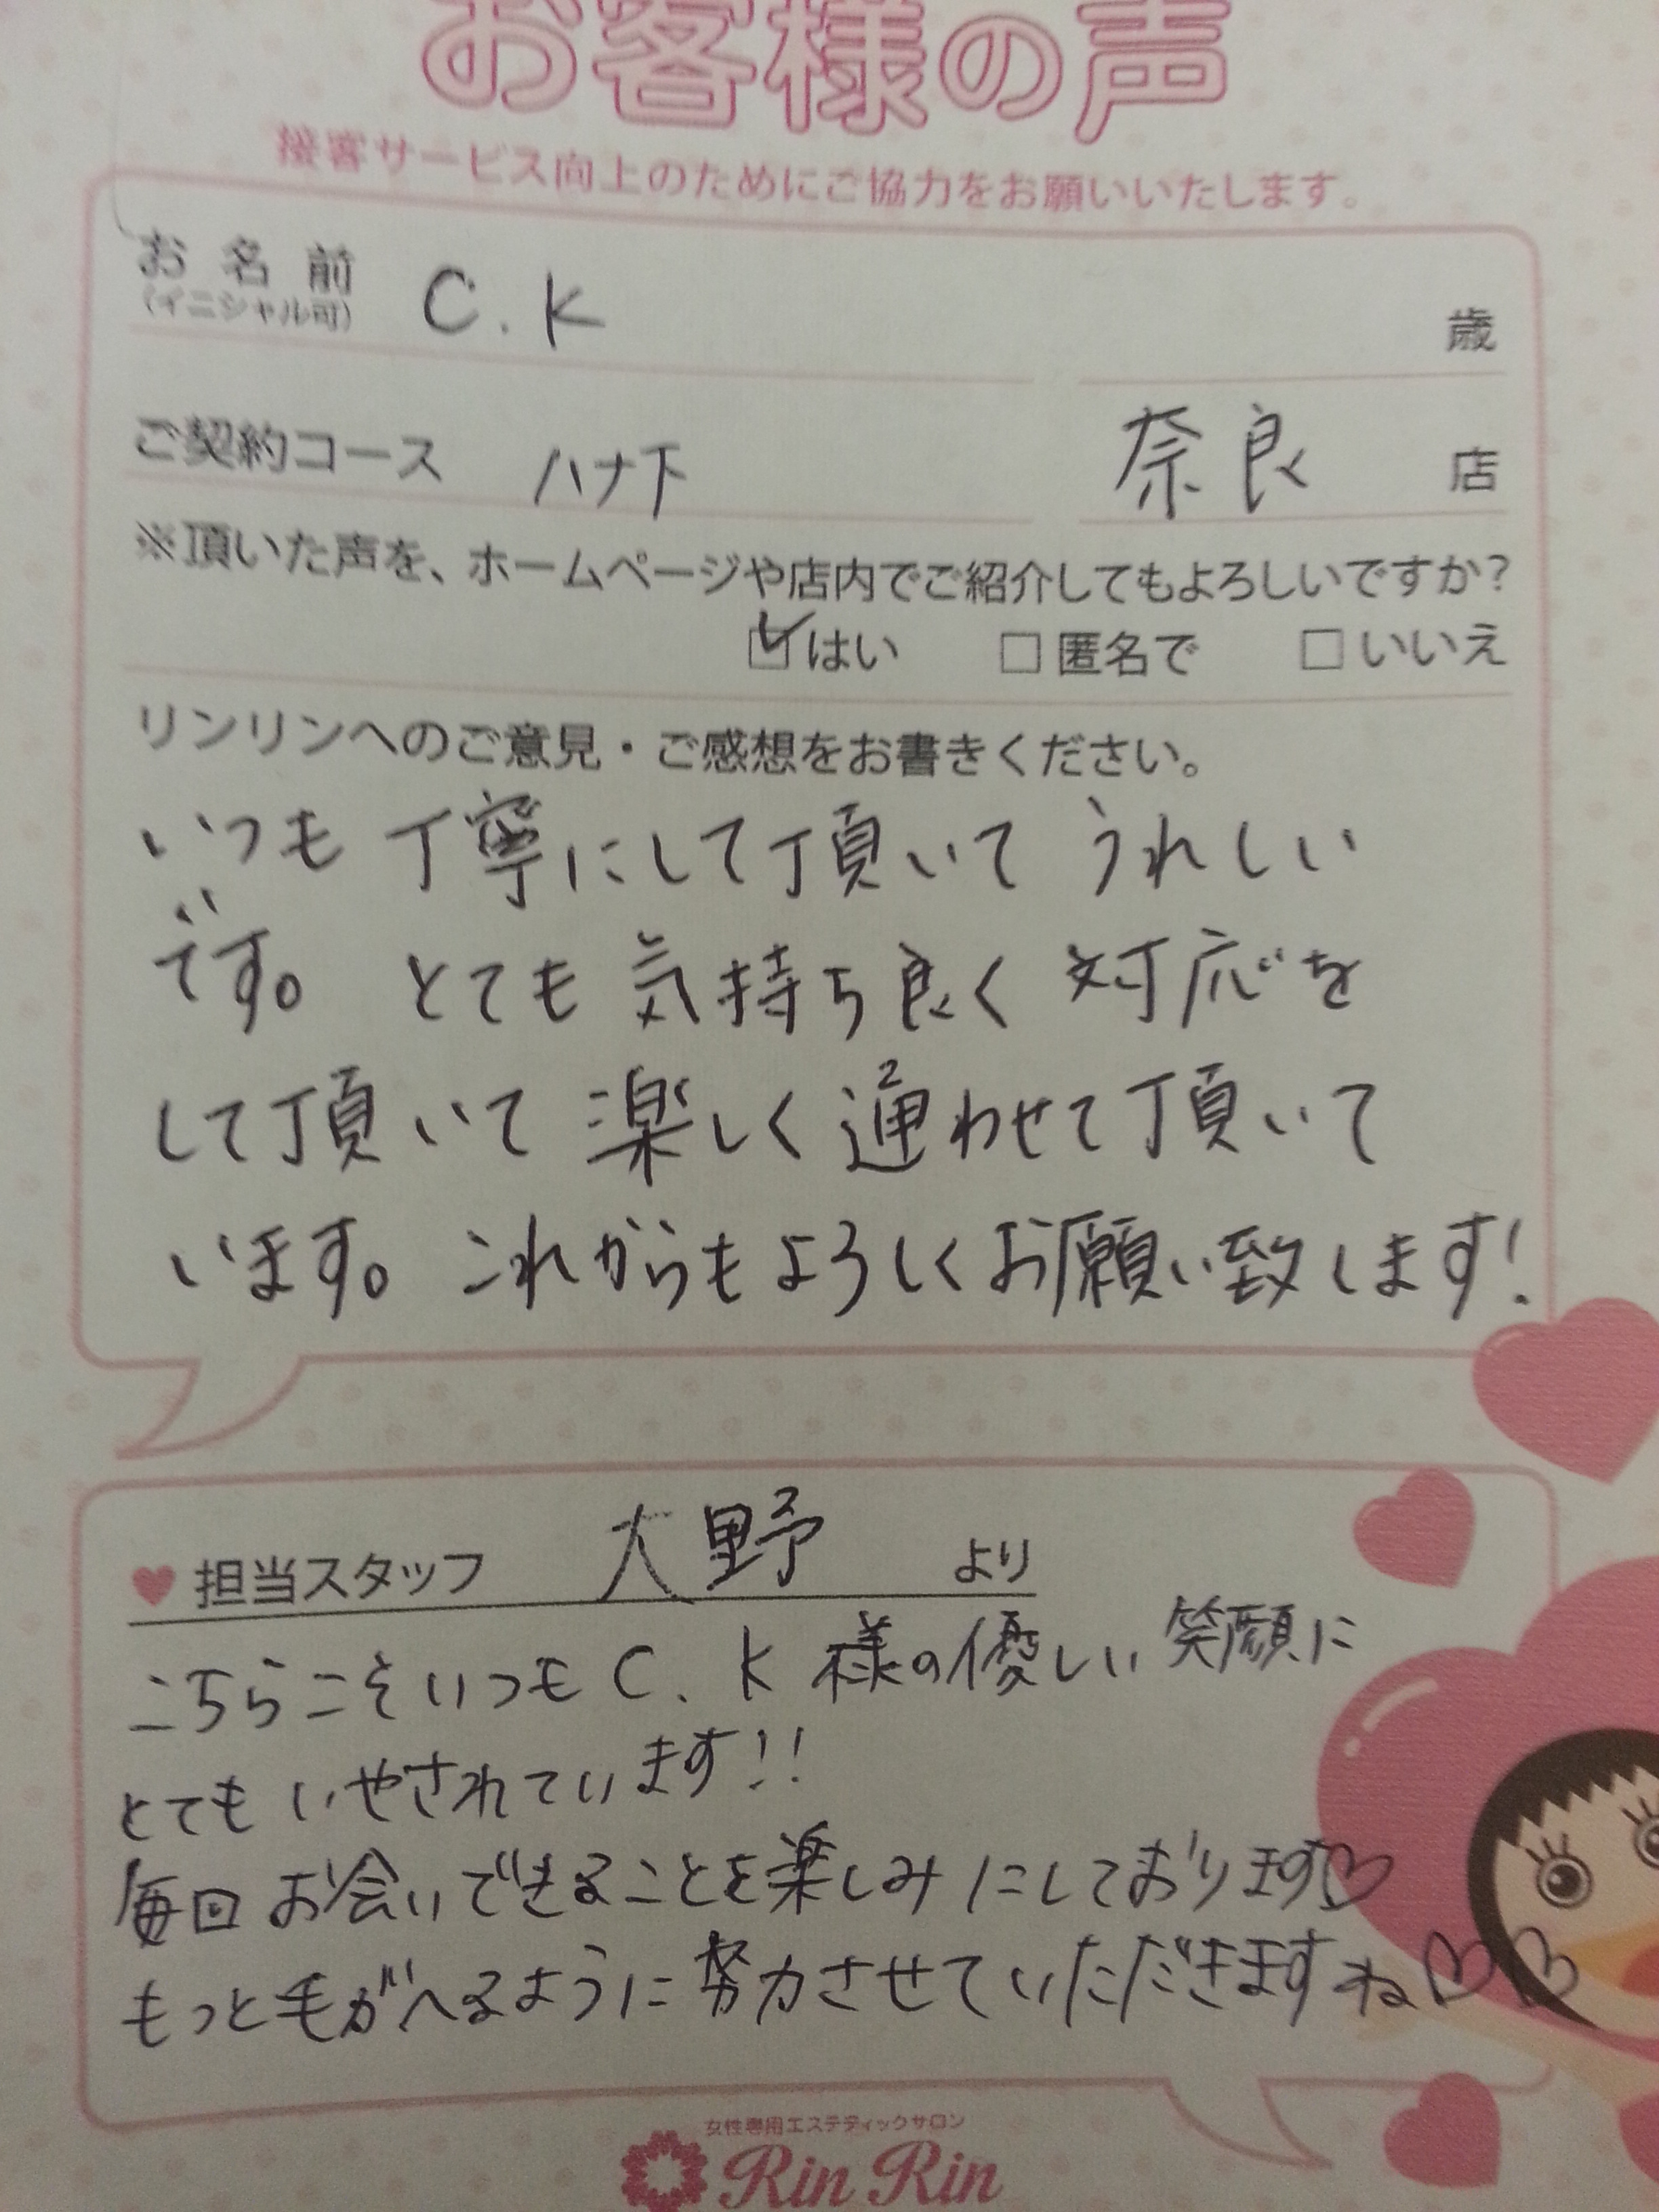 お客様の声
接客サービス向上のためにご協力をお願いいたします。
お名前 C.K 歳
(イニシャル可)
ご契約コース ハナ下 奈良 店
※頂いた声を、ホームページや店内でご紹介してもよろしいですか?
☑はい □匿名で □いいえ
リンリンへのご意見・ご感想をお書きください。
いつも丁寧にして頂いてうれしい
です。とても気持ち良く対応を
して頂いて楽しく通わせて頂いて
います。これからもよろしくお願い致します!
♥担当スタッフ 大野 より
こちらこそいつもC.K様の優しい笑顔に
とてもいやされています!!
毎回お会いできることを楽しみにしております♡
もっと毛がへるように努力させていただきますね♡♡
女性専用エステティックサロン
Rin Rin